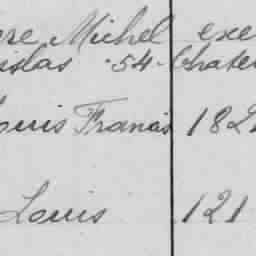 ere Michel exe
islas . 54 . Chate
ouis Francis 182
Louis 121